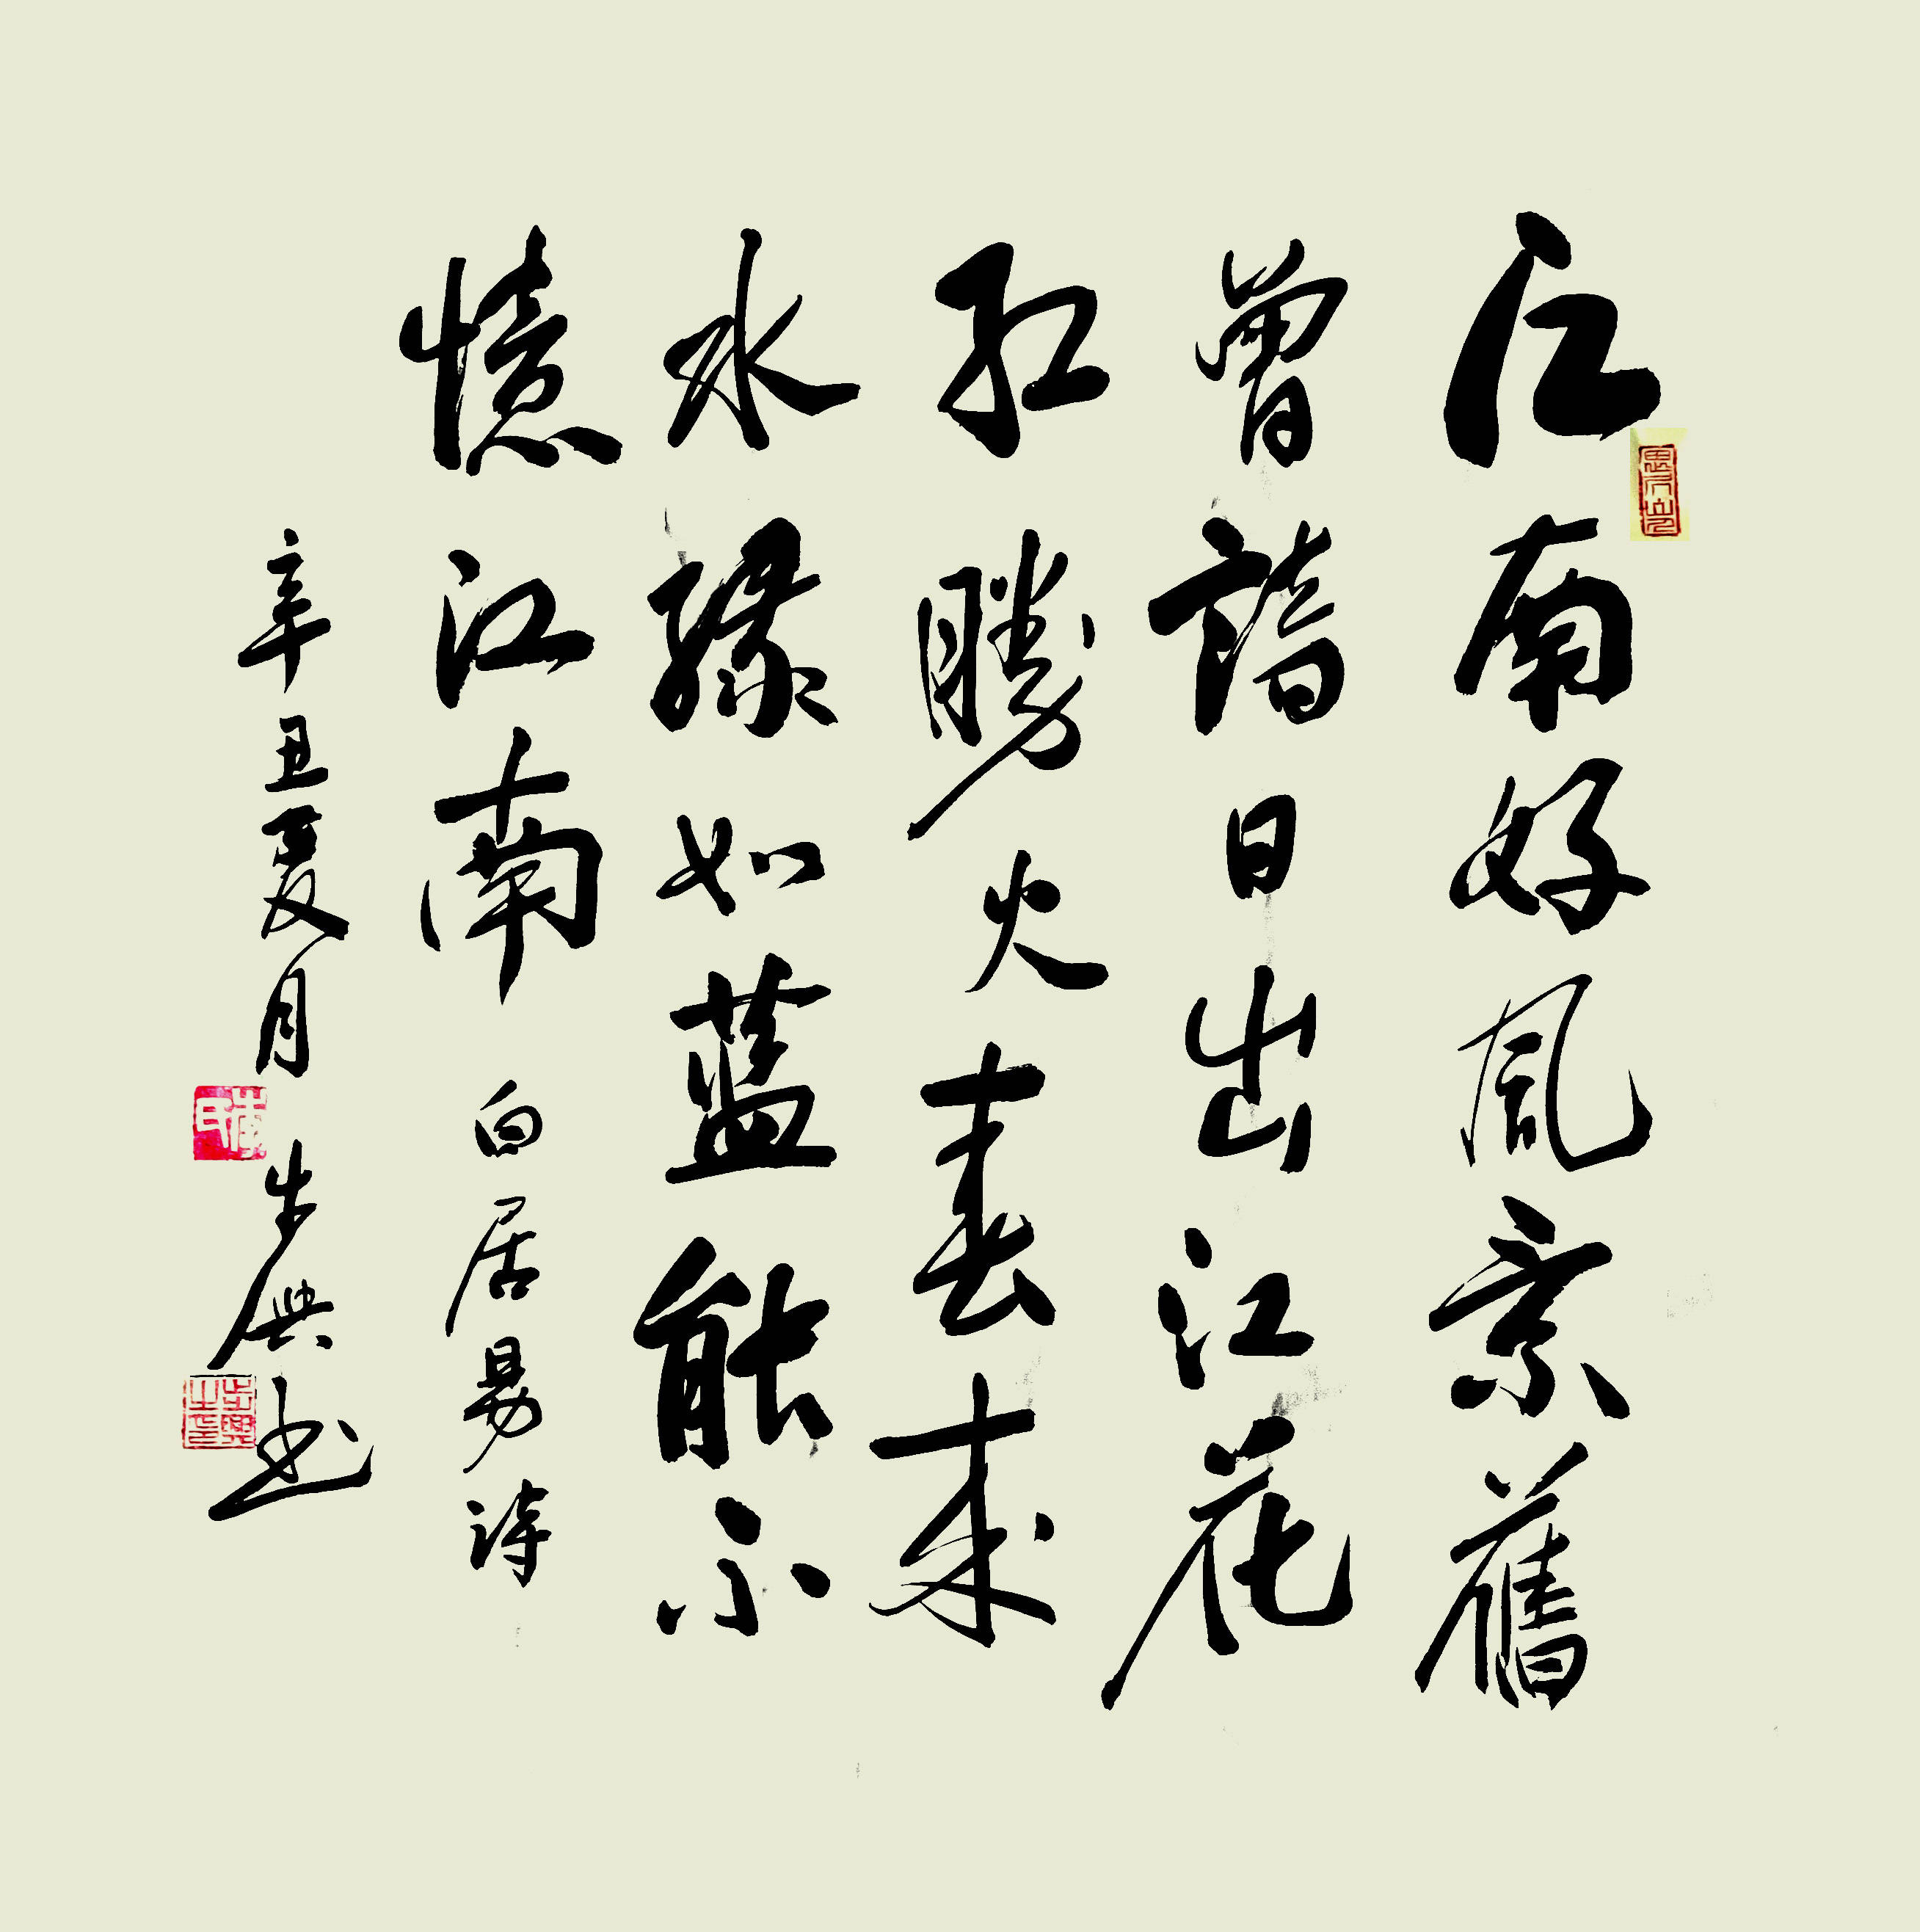 江南好風景舊
曾諳日出江花
紅勝火春来
水綠如蓝能不
憶江南 白居易詩
辛丑夏月 书